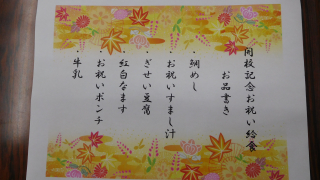 開校記念お祝い給食
お品書き
・鯛めし
・お祝いすまし汁
・ぎせい豆腐
・紅白なます
・お祝いポンチ
・牛乳